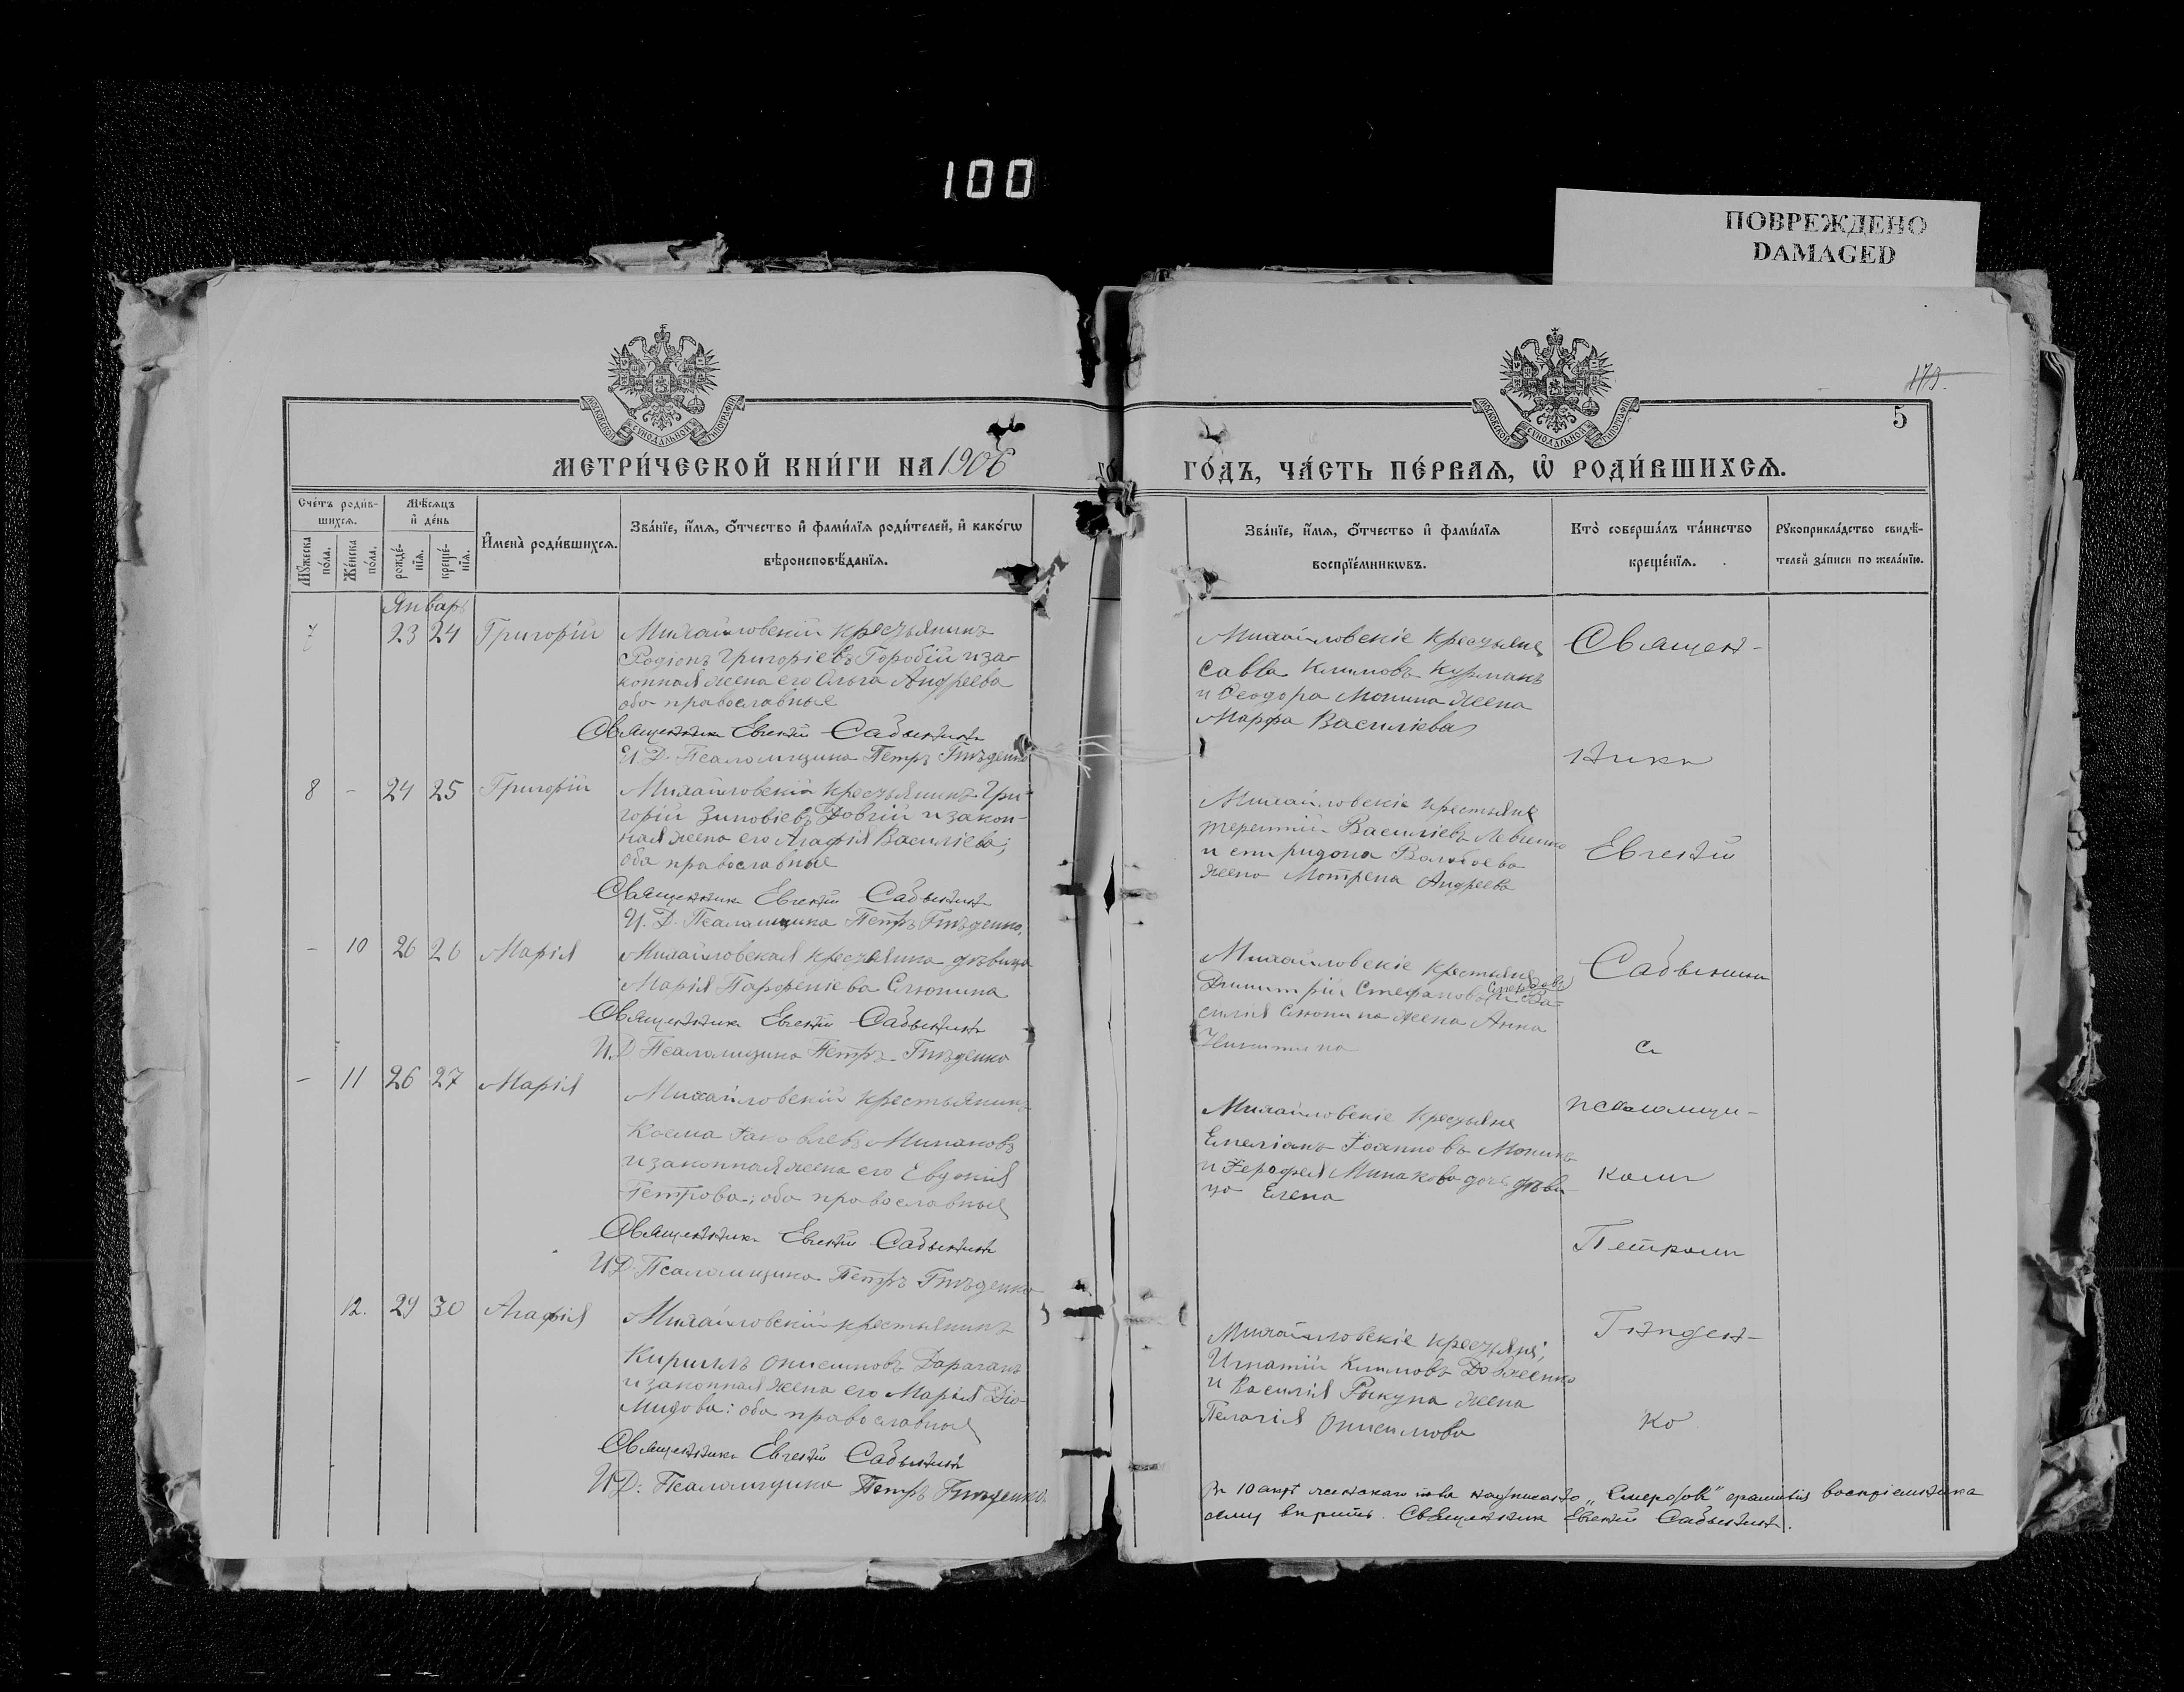 100
ПОВРЕЖДЕНО
DAMAGED
173.
5
МОСКОВСКОЙ СѴНОДАЛЬНОЙ ТИПОГРАФІИ
МОСКОВСКОЙ СѴНОДАЛЬНОЙ ТИПОГРАФІИ
МЕТРИ́ЧЕСКОЙ КНИ́ГИ НА 1906
ГО́ДЪ, ЧА́СТЬ ПЕ́РВАѦ, Ѡ҆ РОДИ́ВШИХСѦ.
Сче́тъ роди́в-
шихсѧ.
Мѣ́сѧцъ
и҆ де́нь
Мꙋ́жеска
по́ла.
Же́нска
по́ла.
рожде́-
нїѧ.
креще́-
нїѧ.
И҆мена̀ роди́вшихсѧ.
Зва́нїе, и҆́мѧ, ѻ҆́тчество и҆ фами́лїѧ роди́телей, и҆ како́гѡ
вѣроисповѣ́данїѧ.
Зва́нїе, и҆́мѧ, ѻ҆́тчество и҆ фами́лїѧ
воспрїе́мникѡвъ.
Кто̀ соверша́лъ та́инство
креще́нїѧ.
Рꙋкоприкла́дство свидѣ́-
телей за́писи по жела́нїю.
Январь
7 23 24 Григорій
Михайловскій крестьянинъ
Родіонъ Григоріевъ Горобій и за-
конная жена его Ольга Андреева
оба православные
Священникъ Евгеній Сабынинъ
И. Д. Псаломщика Петръ Гнѣденко
Михайловскіе крестьяне
Савва Климовъ Курманъ
и Ѳеодора Монина жена
Марфа Василіева
8 - 24 25 Григорій
Михайловскій крестьянинъ Гри-
горій Зиновіевъ Довгій и закон-
ная жена его Агафія Василіева;
оба православные
Священникъ Евгеній Сабынинъ
И. Д. Псаломщика Петръ Гнѣденко.
Михайловскіе крестьяне
Терентій Василіевъ Левченко
и Спиридона жена Мотрена Андреева
- 10 26 26 Марія
Михайловская крестьянка дѣвица
Марія Парфеніева Слюнина
Священникъ Евгеній Сабынинъ
И. Д Псаломщика Петръ Гнѣденко
Михайловскіе крестьяне
Димитрій Стефановъ и Ва-
силія Слюнина жена Анна
Никитина
- 11 26 27 Марія
Михайловскій крестьянинъ
Косма Іаковлевъ Минаковъ
и законная жена его Евдокія
Петрова; оба православные
Священникъ Евгеній Сабынинъ
И.Д. Псаломщика Петръ Гнѣденко
Михайловскіе крестьяне
Емеліанъ Іоанновъ Монинъ
и Іерофея Минакова дочь дѣви-
ца Елена
12. 29 30 Агафія
Михайловскій крестьянинъ
Кириллъ Онисимовъ Дараганъ
и законная жена его Марія Діо-
мидова: оба православные
Священникъ Евгеній Сабынинъ
И Д: Псаломщика Петръ Гнѣденко
Михайловскіе крестьяне;
Игнатій Климовъ Довженко
и Василія Рыкуна жена
Пелагія Онисимова
Священ-
никъ
Евгеній
Сабынинъ
съ
псаломщи-
комъ
Петромъ
Гнѣден-
ко
Въ 10 актѣ женскаго пола надписанію фамилія воспріемника
сему вѣрить. Священникъ Евгеній Сабынинъ.